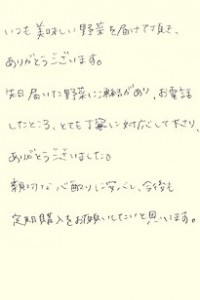 いつも美味しい野菜を届けて頂き、
ありがとうございます。
先日届いた野菜に連絡があり、お電話
したところ、とても丁寧に対応して下さり、
ありがとうございました。
親切な心配りに安心し、今後も
定期購入をお願いしたいと思います。